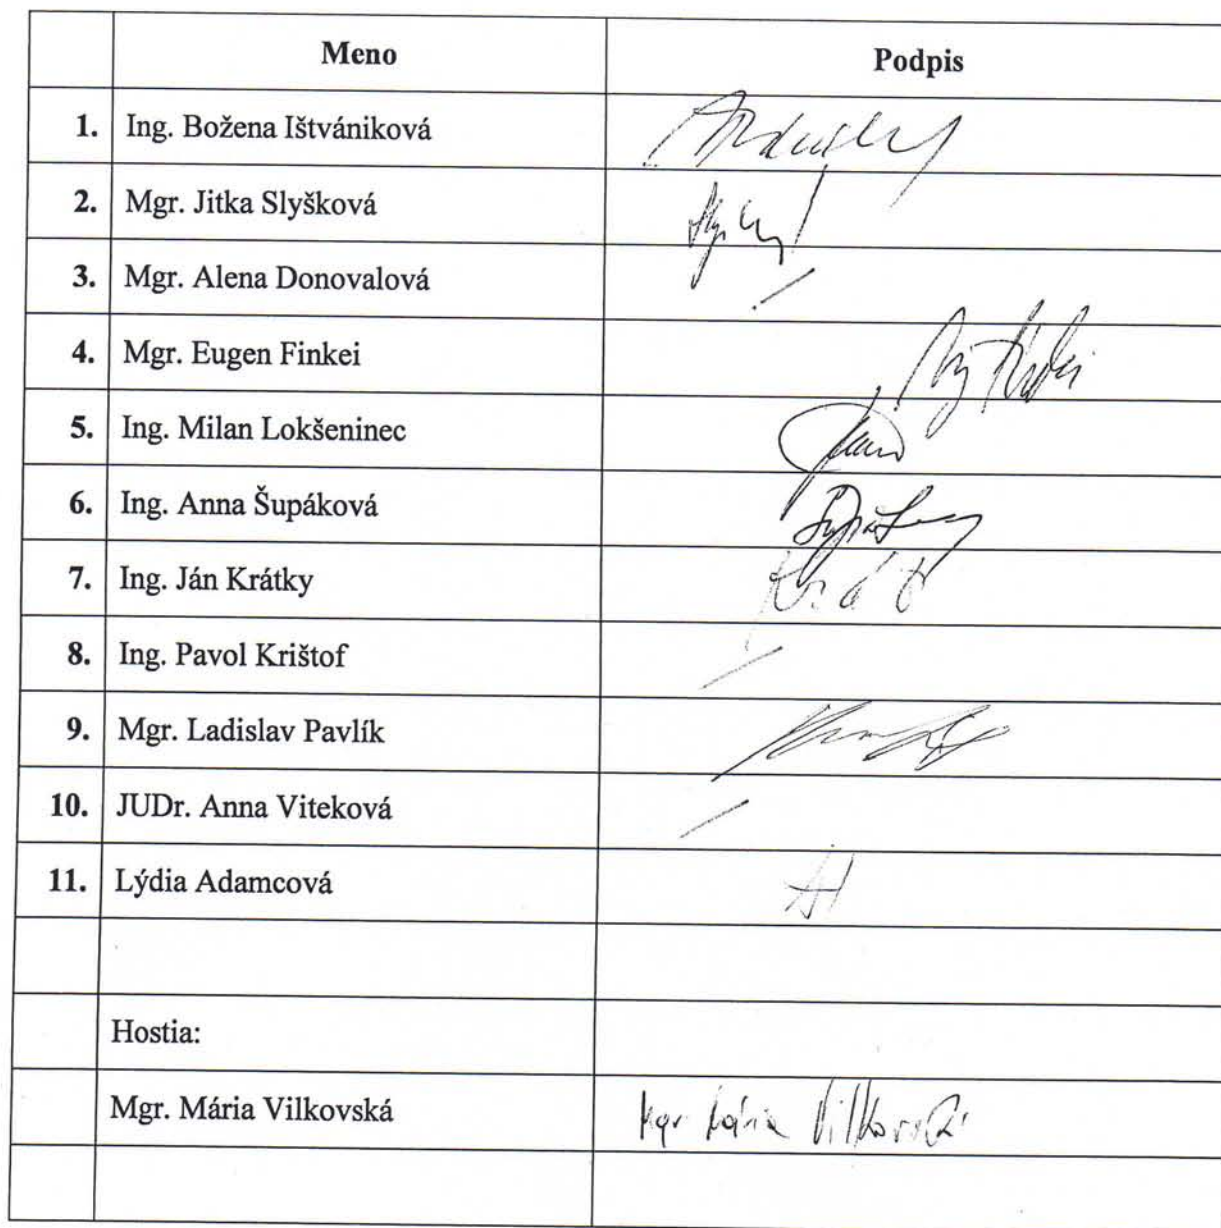 Meno Podpis
1. Ing. Božena Ištvániková
2. Mgr. Jitka Slyšková
3. Mgr. Alena Donovalová
4. Mgr. Eugen Finkei
5. Ing. Milan Lokšeninec
6. Ing. Anna Šupáková
7. Ing. Ján Krátky
8. Ing. Pavol Krištof
9. Mgr. Ladislav Pavlík
10. JUDr. Anna Viteková
11. Lýdia Adamcová
Hostia:
Mgr. Mária Vilkovská Mgr Mária Vilkovská